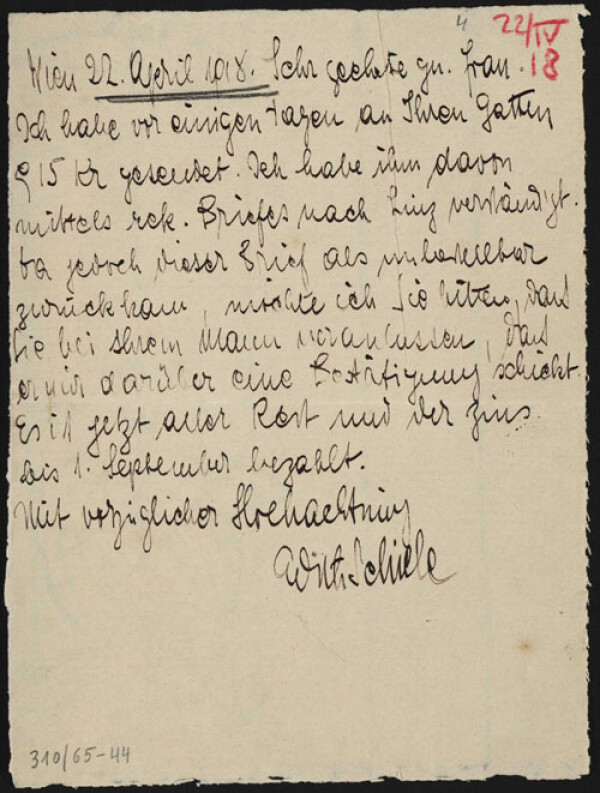 4
22/IV
18
Wien 22. April 1918. Sehr geehrte gn. Frau.
Ich habe vor einigen Tagen an Ihren Gatten
15 Kr gesendet. Ich habe ihn davon
mittels rek. Briefes nach Linz verständigt.
Da jedoch dieser Brief als unbestellbar
zurückkam, möchte ich Sie bitten, dass
Sie bei Ihrem Mann veranlassen, dass
er mir darüber eine Bestätigung schickt.
Es ist jetzt aller Rest und der Zins
bis 1. September bezahlt.
Mit vorzüglicher Hochachtung
Edith Schiele
310/65-44